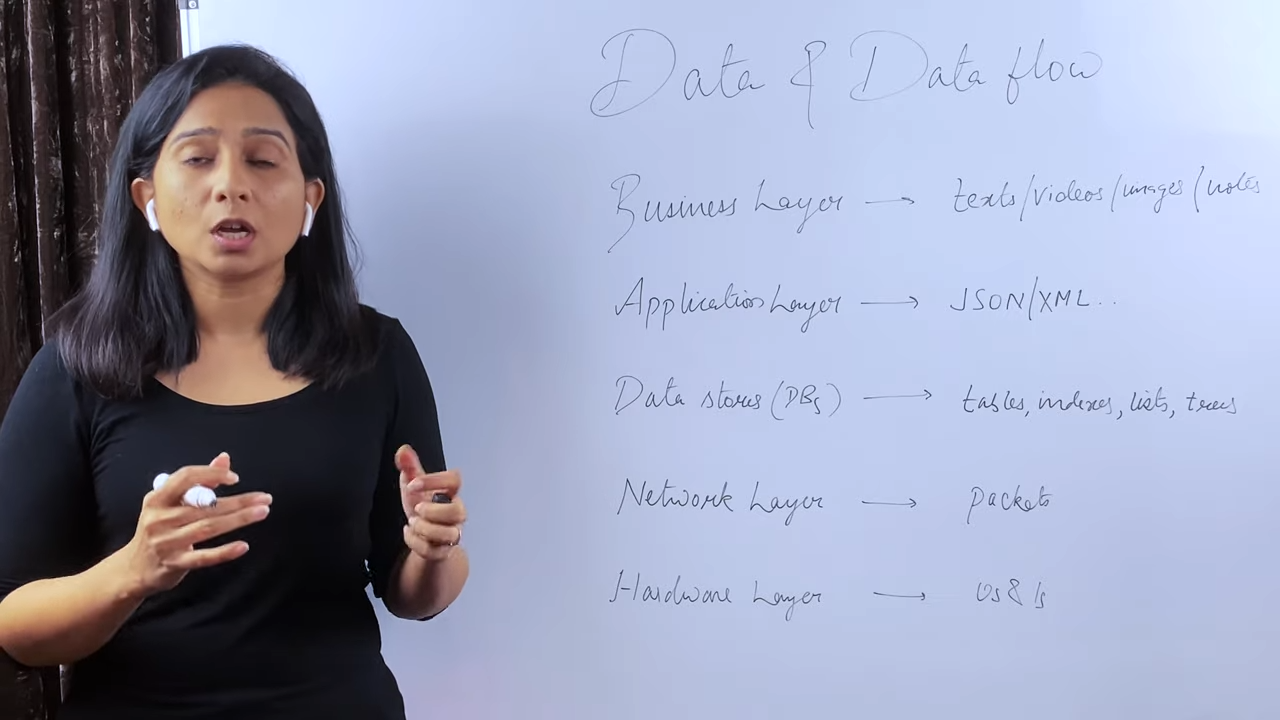 Data & Data flow
Business Layer → texts/videos/images/notes
Application Layer → JSON/XML..
Data stores (DBs) → tables, indexes, lists, trees
Network Layer → packets
Hardware Layer → 0s & 1s